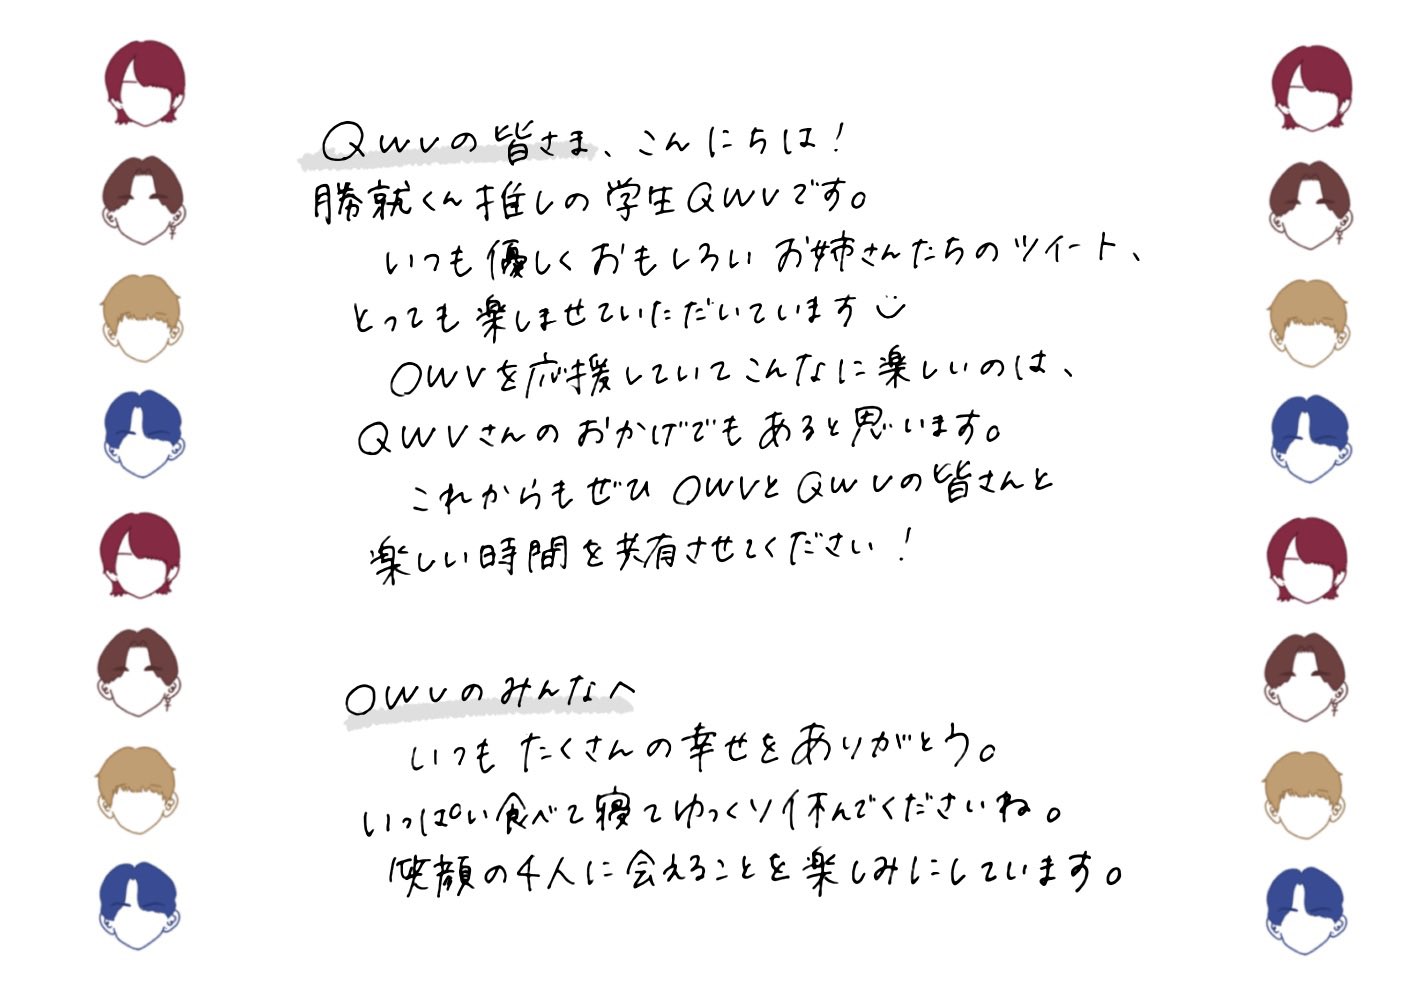 QWVの皆さま、こんにちは！
勝就くん推しの学生QWVです。
いつも優しくおもしろいお姉さんたちのツイート、
とっても楽しませていただいています
OWVを応援していてこんなに楽しいのは、
QWVさんのおかげでもあると思います。
これからもぜひOWVとQWVの皆さんと
楽しい時間を共有させてください！
OWVのみんなへ
いつもたくさんの幸せをありがとう。
いっぱい食べて寝てゆっくり休んでくださいね。
笑顔の4人に会えることを楽しみにしています。